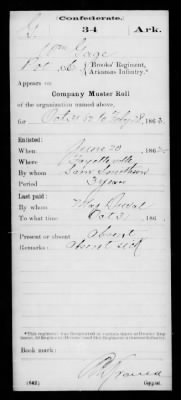 Confederate.
G 34 Ark.
Wm Gage
Pvt, Co. { Brooks' Regiment, Arkansas Infantry.*
Appears on
Company Muster Roll
of the organization named above,
for Oct 31 62 to Feby 28, 1863.
Enlisted:
When June 20, 186
Where Fayetteville
By whom
Period 3 years
Last paid:
By whom
To what time Oct 31, 186
Present or absent Absent
Remarks: Absent sick
Book mark:
(642) Copyist.